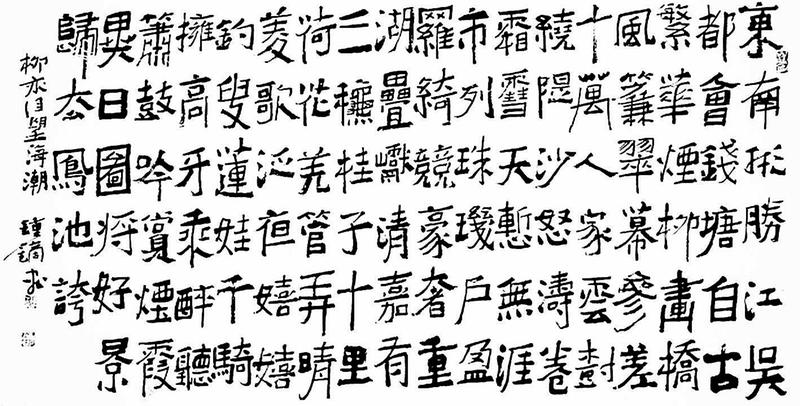 東南形勝江吳
都會錢塘自古
繁華煙柳畫橋
風簾翠幕參差
十萬人家雲樹
繞隄沙怒濤卷
霜雪天慙無涯
市列珠璣戶盈
羅綺競豪奢重
湖疊巘清嘉有
三龝桂子十里
荷花羌管弄晴
菱歌泛夜嬉嬉
釣叟蓮娃千騎
擁高牙乘醉聽
簫鼓吟賞煙霞
異日圖將好景
歸去鳳池誇
柳永詞望海潮